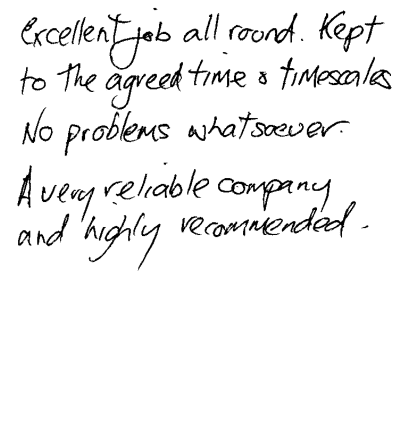 excellent job all round. Kept
to the agreed time & timescales
No problems whatsoever.
A very reliable company
and highly recommended.